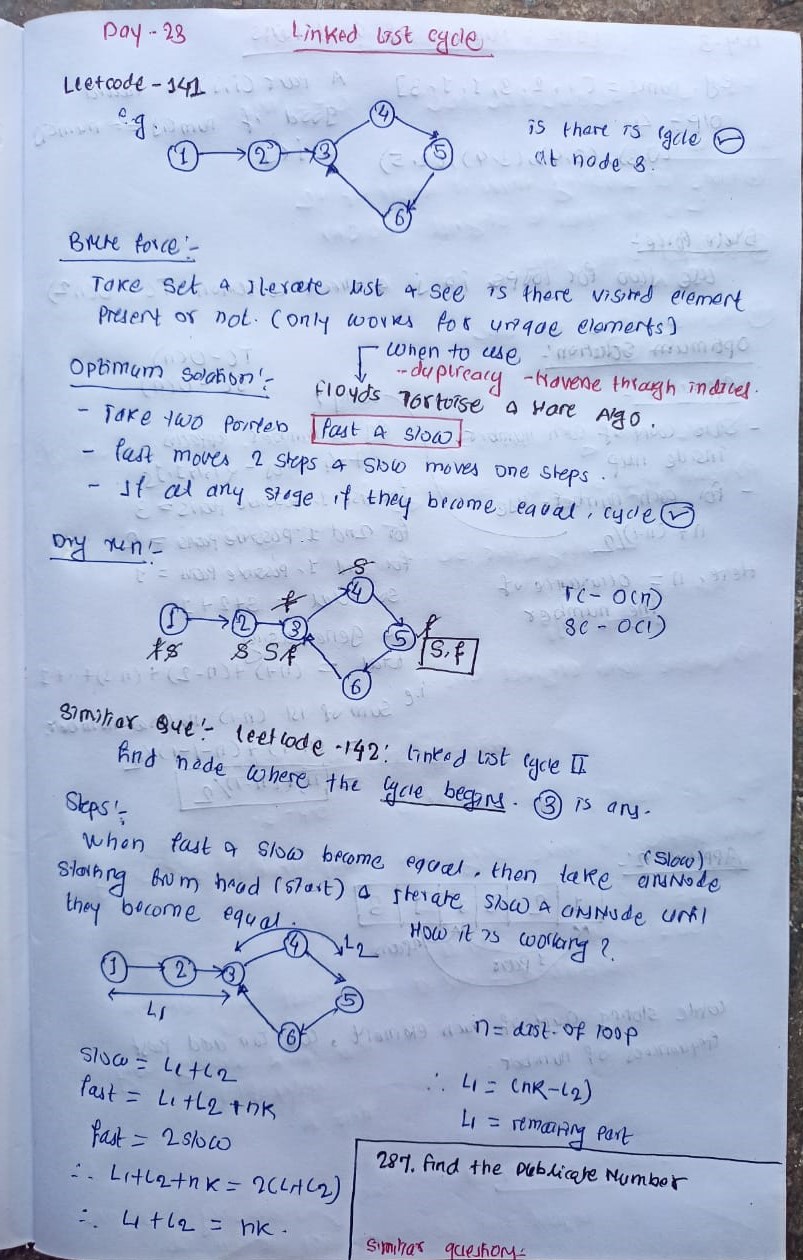 Day - 23
Linked list cycle
Leetcode - 141
e.g
1 2 3 4 5 6
is there is cycle
at node 3.
Brute force :-
Take set & iterate list & see is there visited element
Present or not. (only works for unique elements)
when to use
Optimum solution :-
- duplicacy - traverse through indices.
floyd's Tortoise & Hare Algo.
- Take two pointers fast & slow
- fast moves 2 steps & slow moves one steps.
- If at any stage if they become equal, cycle
Dry run :-
TC - O(n)
SC - O(1)
1 2 3 4 5 6
f s s s f f s f s,f
Similar Que :- leetcode - 142: linked list cycle II
find node where the cycle begins. 3 is ans.
Steps :-
When fast & slow become equal, then take (slow) ansNode
starting from head (start) & iterate slow & ansNode until
they become equal.
How it is working?
1 2 3 4 5 6
L1
L2
n = dist. of loop
slow = L1+L2
fast = L1+L2+nK
fast = 2slow
∴ L1+L2+nK = 2(L1+L2)
∴ L1+L2 = nK.
∴ L1 = (nK-L2)
L1 = remaining part
287. Find the Dublicate Number
Similar question:-